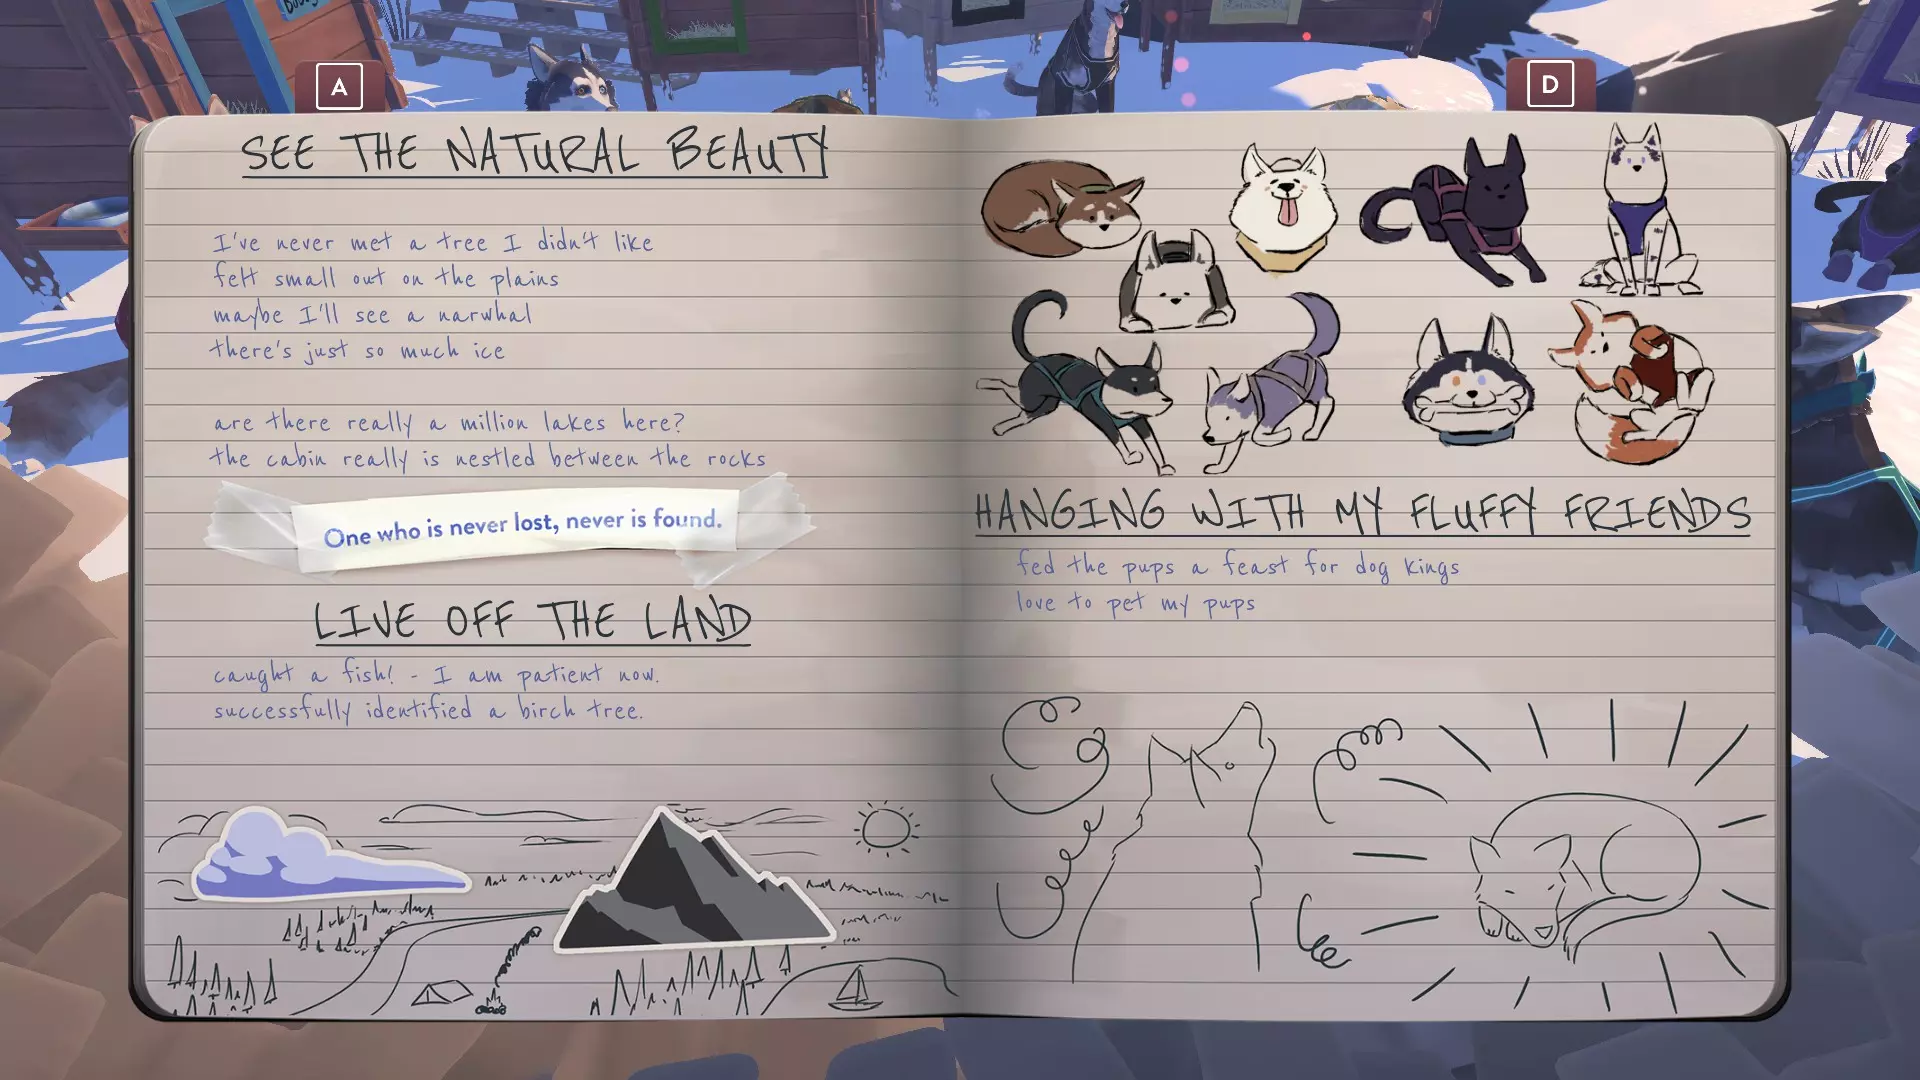 A
D
SEE THE NATURAL BEAUTY
I've never met a tree I didn't like
felt small out on the plains
maybe I'll see a narwhal
there's just so much ice
are there really a million lakes here?
the cabin really is nestled between the rocks
One who is never lost, never is found.
LIVE OFF THE LAND
caught a fish! - I am patient now.
successfully identified a birch tree.
HANGING WITH MY FLUFFY FRIENDS
fed the pups a feast for dog kings
love to pet my pups